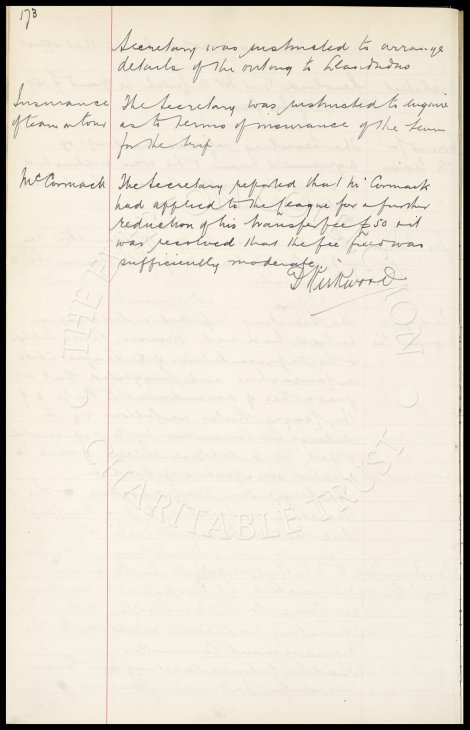 173
Secretary was instructed to arrange
details of the outing to Llandudno
Insurance
of team on tour
The Secretary was instructed to enquire
as to terms of insurance of the team
for the trip
McCormack
The Secretary reported that McCormack
had applied to the League for a further
reduction of his transfer fee £50 & it
was resolved that the fee fixed was
sufficiently moderate.
D Kirkwood
CHARITABLE TRUST